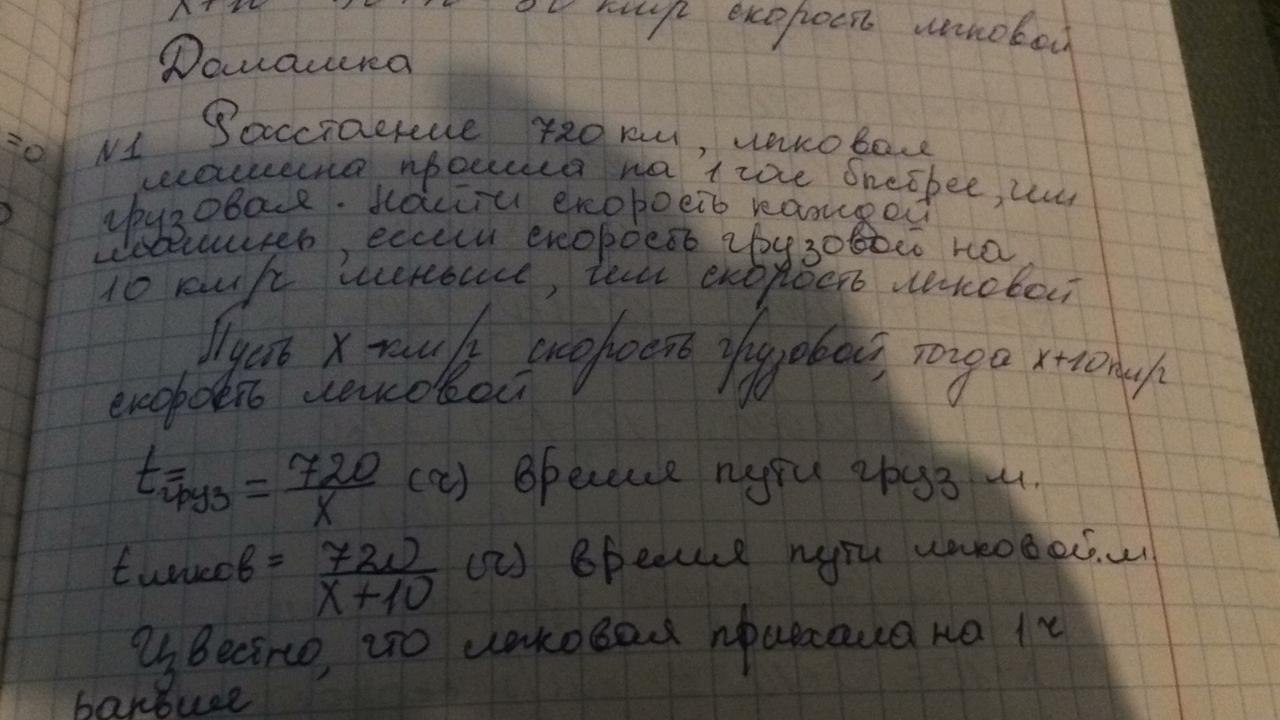 км/г скорость легковой
Домашка
=0
N1 Расстаение 720 км, легковая
машина прошла на 1 час быстрее, чем
грузовая. Найти скорость каждой
машины, если скорость грузовой на
10 км/г меньше, чем скорость легковой
Пусть x км/г скорость грузовой, тогда x+10 км/г
скорость легковой
t груз = 720/x (ч) время пути груз м.
t легков = 720/x+10 (ч) время пути легковой.м.
Известно, что легковая приехала на 1 ч
раньше